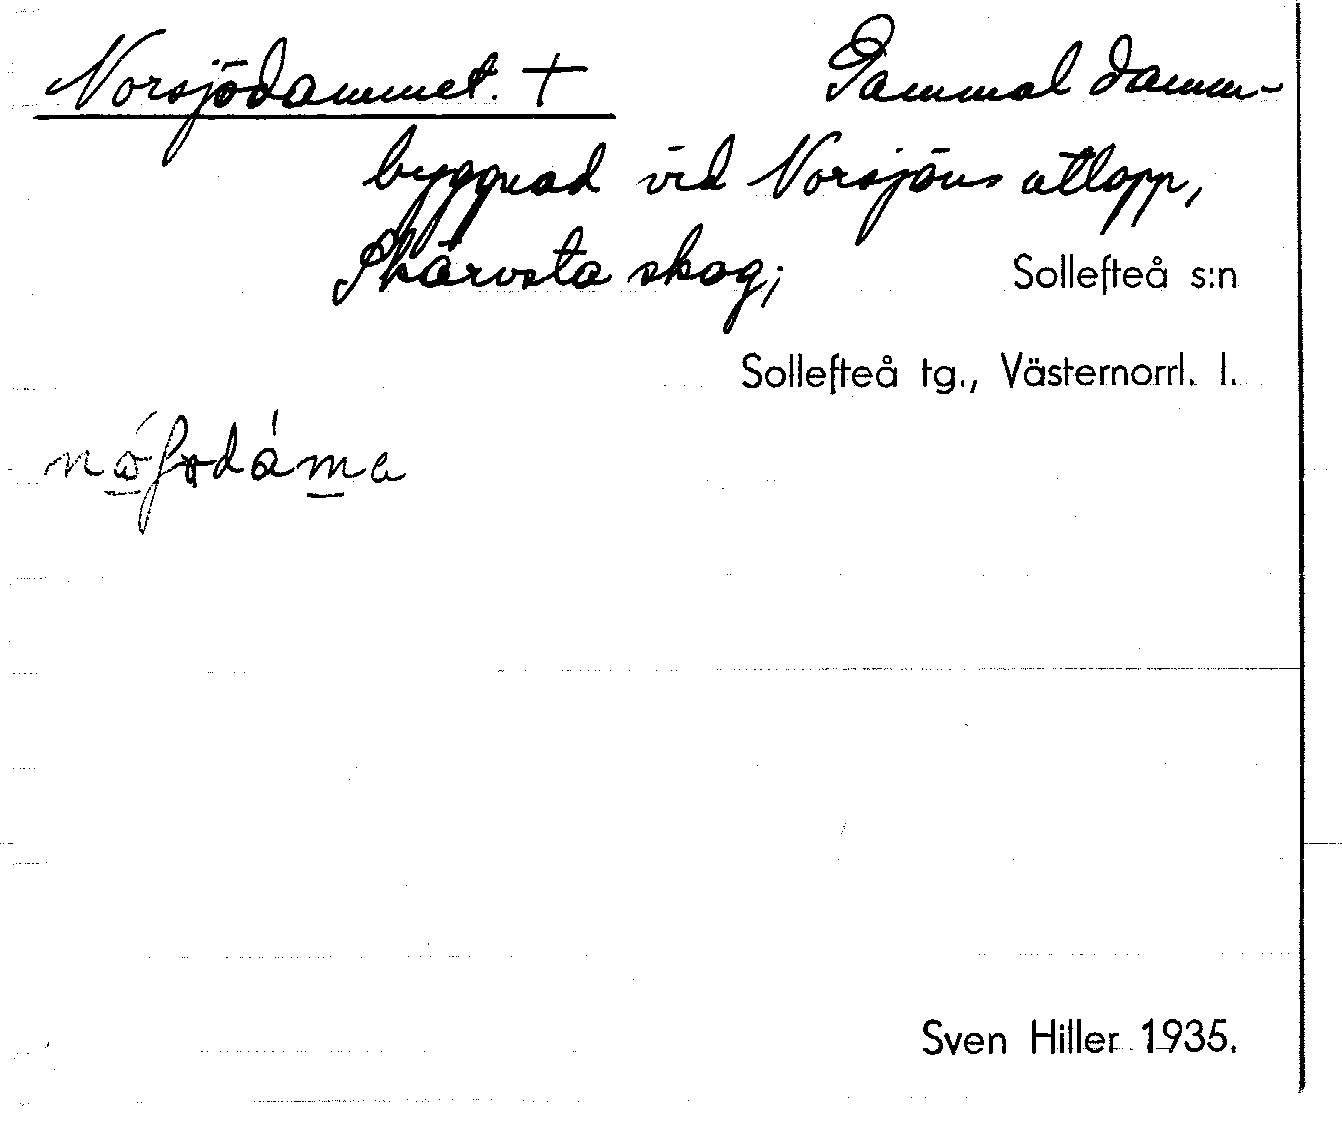 Norsjödammet. + Gammal damm-
byggnad vid Norsjöns utlopp,
Skärvsta skog; Sollefteå s:n
Sollefteå tg., Västernorrl. l.
Sven Hiller 1935.